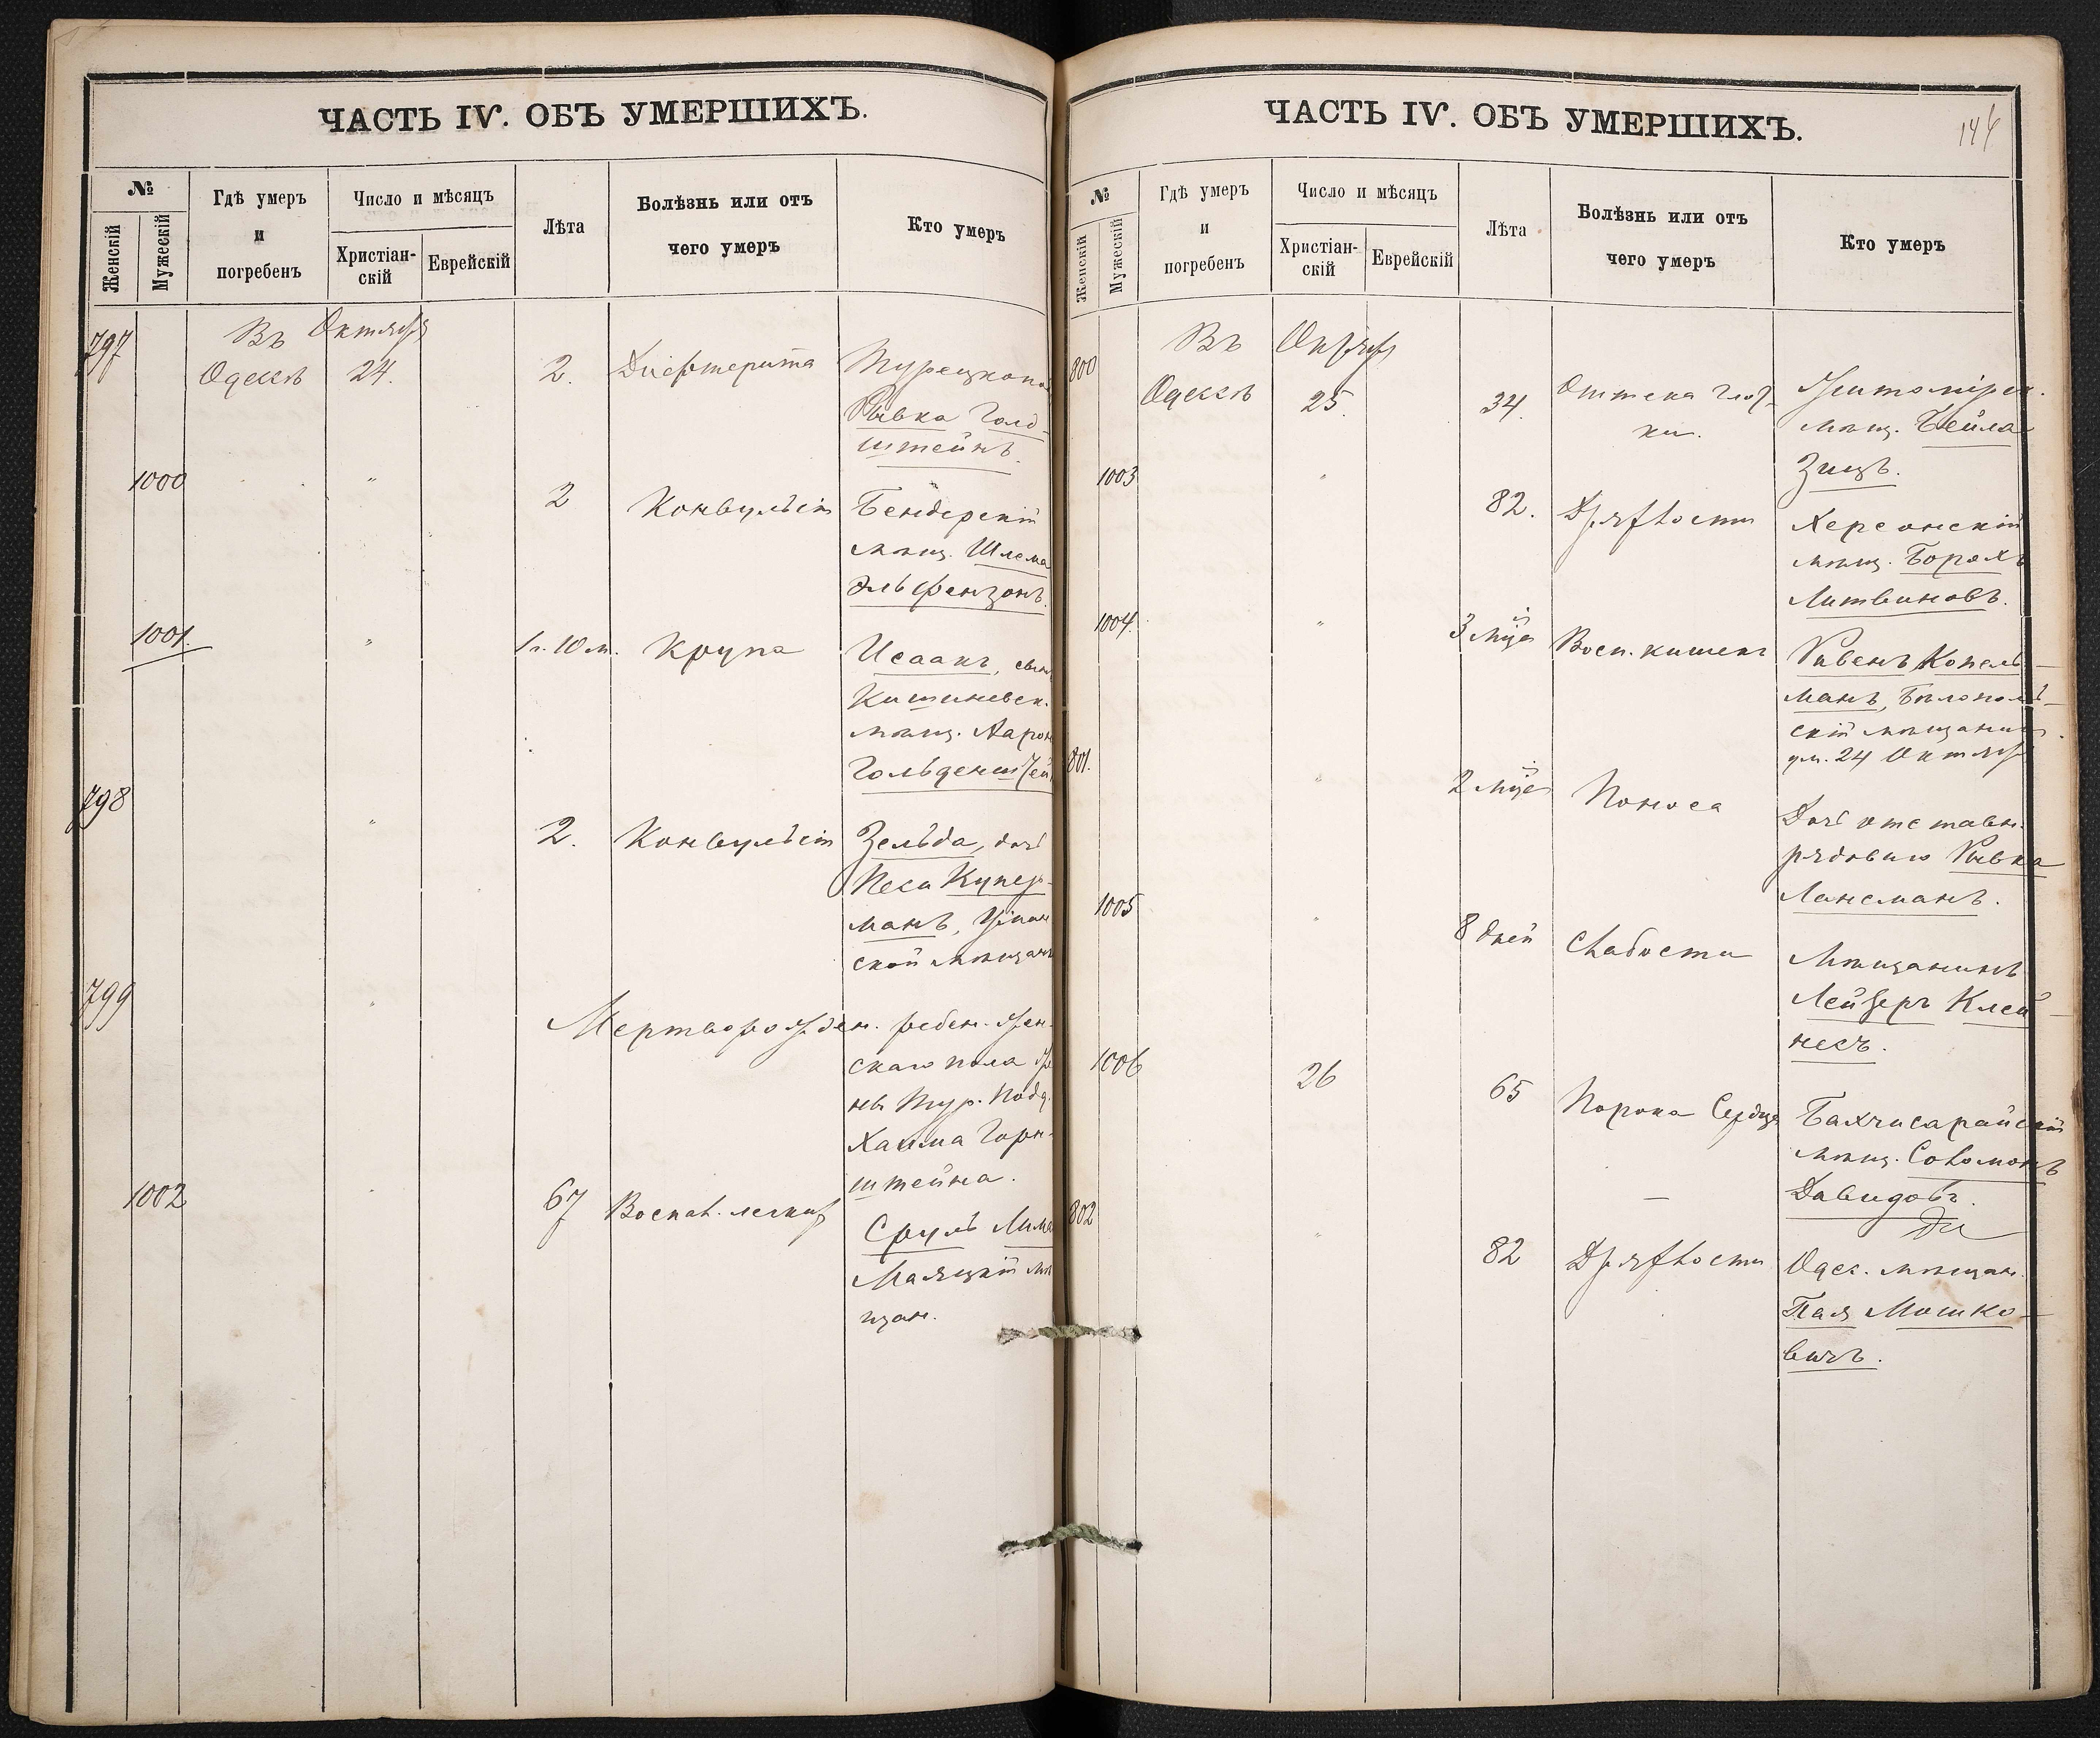 ЧАСТЬ IV. ОБЪ УМЕРШИХЪ.
№
Женскій
Мужескій
Гдѣ умеръ
и
погребенъ
Число и мѣсяцъ
Христіан-
скій
Еврейскій
Лѣта
Болѣзнь или отъ
чего умеръ
Кто умеръ
797
Въ Октября
Одессѣ 24. 2. Дифтерита
Рывка Голд-
штейнъ.
1000 " 2 Конвульсіи Бендерскій
мѣщ. Шлема
Эльфензонъ.
1001. " 1 г. 10 м. Крупа Исаакъ, сынъ
Кишиневск.
мѣщ. Аарон
Гольденштей
798 " 2. Конвульсіи Зельда, дочь
Песи Купер-
манъ,
ской мѣщан
799 " Мертворожден. ребен. жен-
скаго пола
Тур. подд.
Хаима Горн-
штейна.
1002 " 67 Воспал. легких
Сруль
мѣ
щан.
ЧАСТЬ IV. ОБЪ УМЕРШИХЪ.
№
Женскій
Мужескій
Гдѣ умеръ
и
погребенъ
Число и мѣсяцъ
Христіан-
скій
Еврейскій
Лѣта
Болѣзнь или отъ
чего умеръ
Кто умеръ
800 Въ Октября
Одессѣ 25. 34. Оттека глот-
ки.
Житомірск.
мѣщ. Бейла
Зицъ.
1003 " 82. Дряхлости Херсонскій
мѣщ. Борохъ
Литвиновъ.
1004. " 3 мѣс Восп. кишекъ Ривенъ Копель-
манъ, Бѣлополь-
скій мѣщанин
ум. 24 Октября
801. " 2 мѣс Поноса
Дочь отставн.
рядоваго Рывка
Лансманъ.
1005 " 8 дней Слабости Мѣщанинъ
Лейзеръ Клей-
несъ.
1006 26 65 Порока Сердца Бахчисарайскій
мѣщ. Соломонъ
Давидовъ.
802 " 82 Дряхлости Одес. мѣщан.
Пая Мошко-
вичъ.